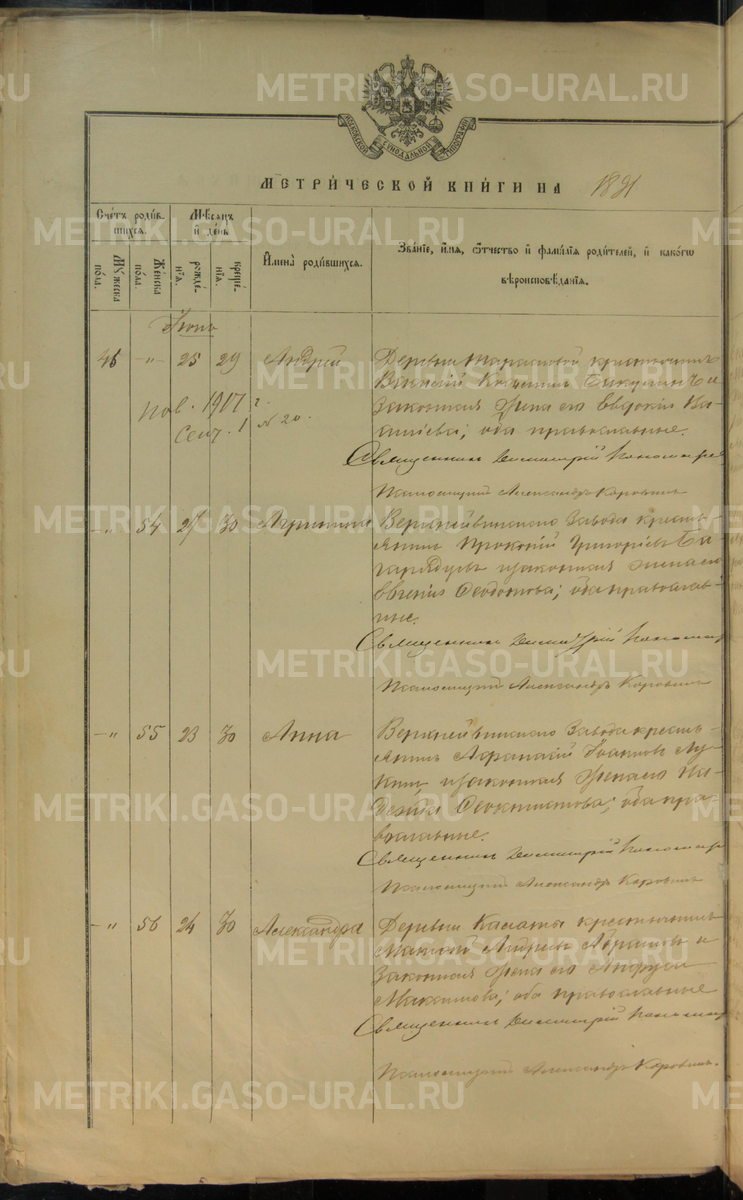 МОСКОВСКОЙ СѴНОДАЛЬНОЙ ТИПОГРАФІИ
МЕТРИЧЕСКОЙ КНИГИ НА 1891
Счетъ родившихся.
Мужеска пола.
Женска пола.
Мѣсяцъ и день
рожденія.
крещенія.
Имена родившихся.
Званіе, имя, отчество и фамилія родителей, и какого
вѣроисповѣданія.
Іюнь
46 " 25 29 Андрей
Деревни Тарасовой крестьянинъ
Василій
законная жена его Евдокія Ва-
сильева; оба православные.
Пов. 1917 г.
Сент. 1 № 20.
Священникъ Димитрій Пономаре
Псаломщикъ Александръ Коровинъ
" 54 27 30
Верхнейвинскаго завода кресть-
янинъ Прокопій Григорьевъ
и законная жена его
Евгенія Ѳеодотова; оба православ-
ные.
Священникъ Димитрій Пономар
Псаломщикъ Александръ Коровинъ
" 55 23 30 Анна
Верхнейвинскаго завода кресть-
янинъ Аѳанасій Іоанновъ Лу-
кинъ и законная жена его На-
дежда Ѳеоктистова; оба пра-
вославные.
Священникъ Димитрій Пономаре
Псаломщикъ Александръ Коровинъ
" 56 24 30 Александра
Деревни крестьянинъ
Андреевъ и
законная жена его
Максимова; оба православные
Священникъ Димитрій Пономар
Псаломщикъ Александръ Коровинъ.
METRIKI.GASO-URAL.RU